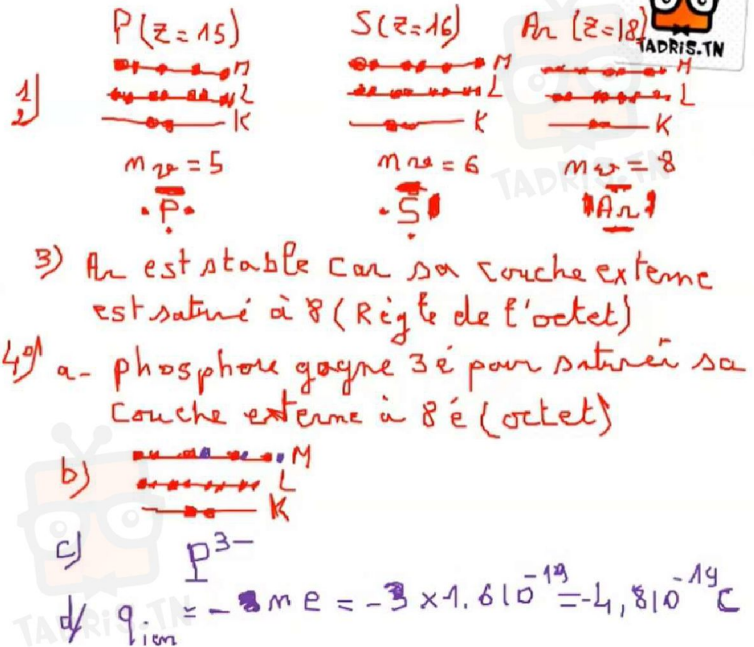 P(Z=15) S(Z=16) Ar (Z=18)
TADRIS.TN
M M M
1) L L L
2) K K K
nv = 5 nv = 6 nv = 8
P S Ar
3) Ar est stable car sa couche externe
est saturé à 8 (Règle de l'octet)
4°) a- phosphore gagne 3é pour saturer sa
couche externe à 8 é (octet)
M
b) L
K
c) P3-
d/ qion = - n e = -3 x 1.6 10-19 = -4,8 10-19 C